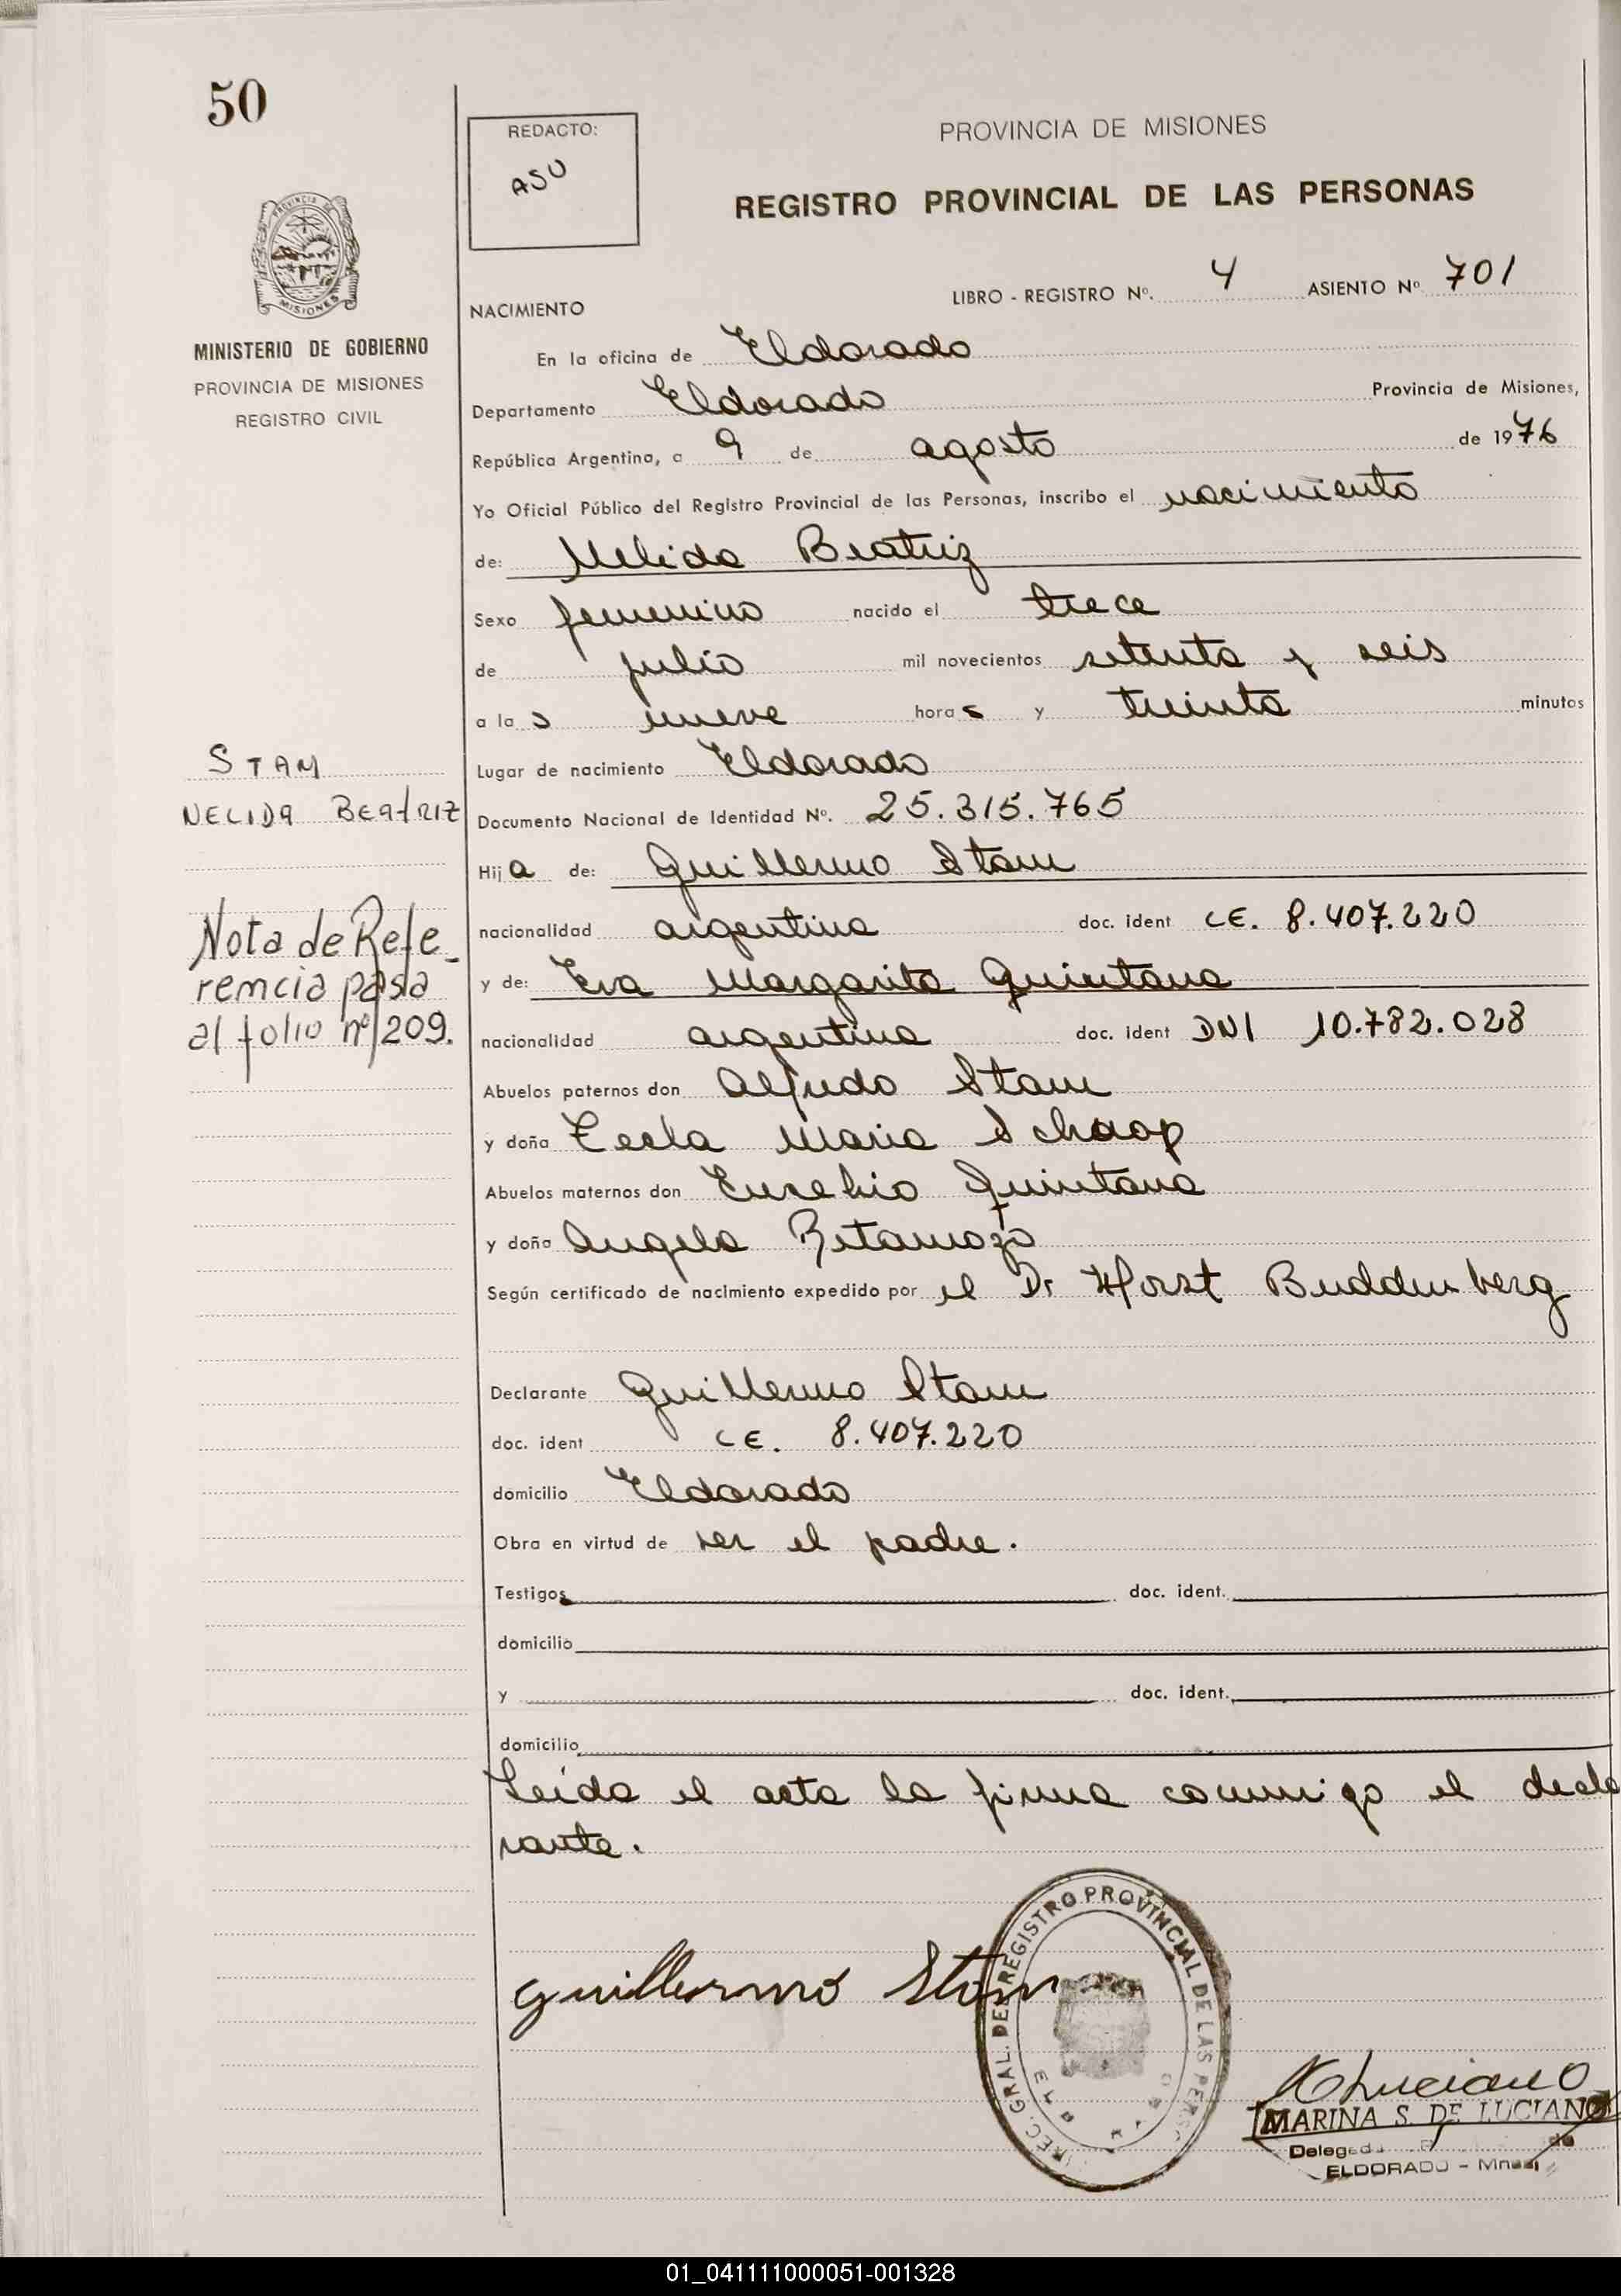 50
REDACTO:
ASU
PROVINCIA DE MISIONES
REGISTRO PROVINCIAL DE LAS PERSONAS
PROVINCIA DE
MISIONES
MINISTERIO DE GOBIERNO
PROVINCIA DE MISIONES
REGISTRO CIVIL
LIBRO - REGISTRO Nº. 4 ASIENTO Nº 701
NACIMIENTO
En la oficina de Eldorado
Departamento Eldorado Provincia de Misiones,
República Argentina, a 9 de agosto de 1976
Yo Oficial Público del Registro Provincial de las Personas, inscribo el nacimiento
de: Nelida Beatriz
Sexo femenino nacido el trece
de julio mil novecientos setenta y seis
a las nueve horas y treinta minutos
Lugar de nacimiento Eldorado
Documento Nacional de Identidad Nº. 25.315.765
Hija de: Guillermo Stam
nacionalidad argentina doc. ident CE. 8.407.220
y de: Eva Margarita Quintana
nacionalidad argentina doc. ident DNI 10.782.028
Abuelos paternos don Alfredo Stam
y doña Tecla Maria Schaap
Abuelos maternos don Eusebio Quintana
y doña Angela Retamozo
Según certificado de nacimiento expedido por el Dr Horst Buddenberg
Declarante Guillermo Stam
doc. ident CE. 8.407.220
domicilio Eldorado
Obra en virtud de ser el padre.
Testigos doc. ident.
domicilio
y doc. ident.
domicilio
Leida el acta la firma conmigo el decla
rante.
STAM
NELIDA BEATRIZ
Nota de Refe_
rencia pasa
al folio nº 209.
guillermo Stam
REC. GRAL. DEL REGISTRO PROVINCIAL DE LAS PERS
MARINA S. DE LUCIANO
ELDORADO -
01_041111000051-001328